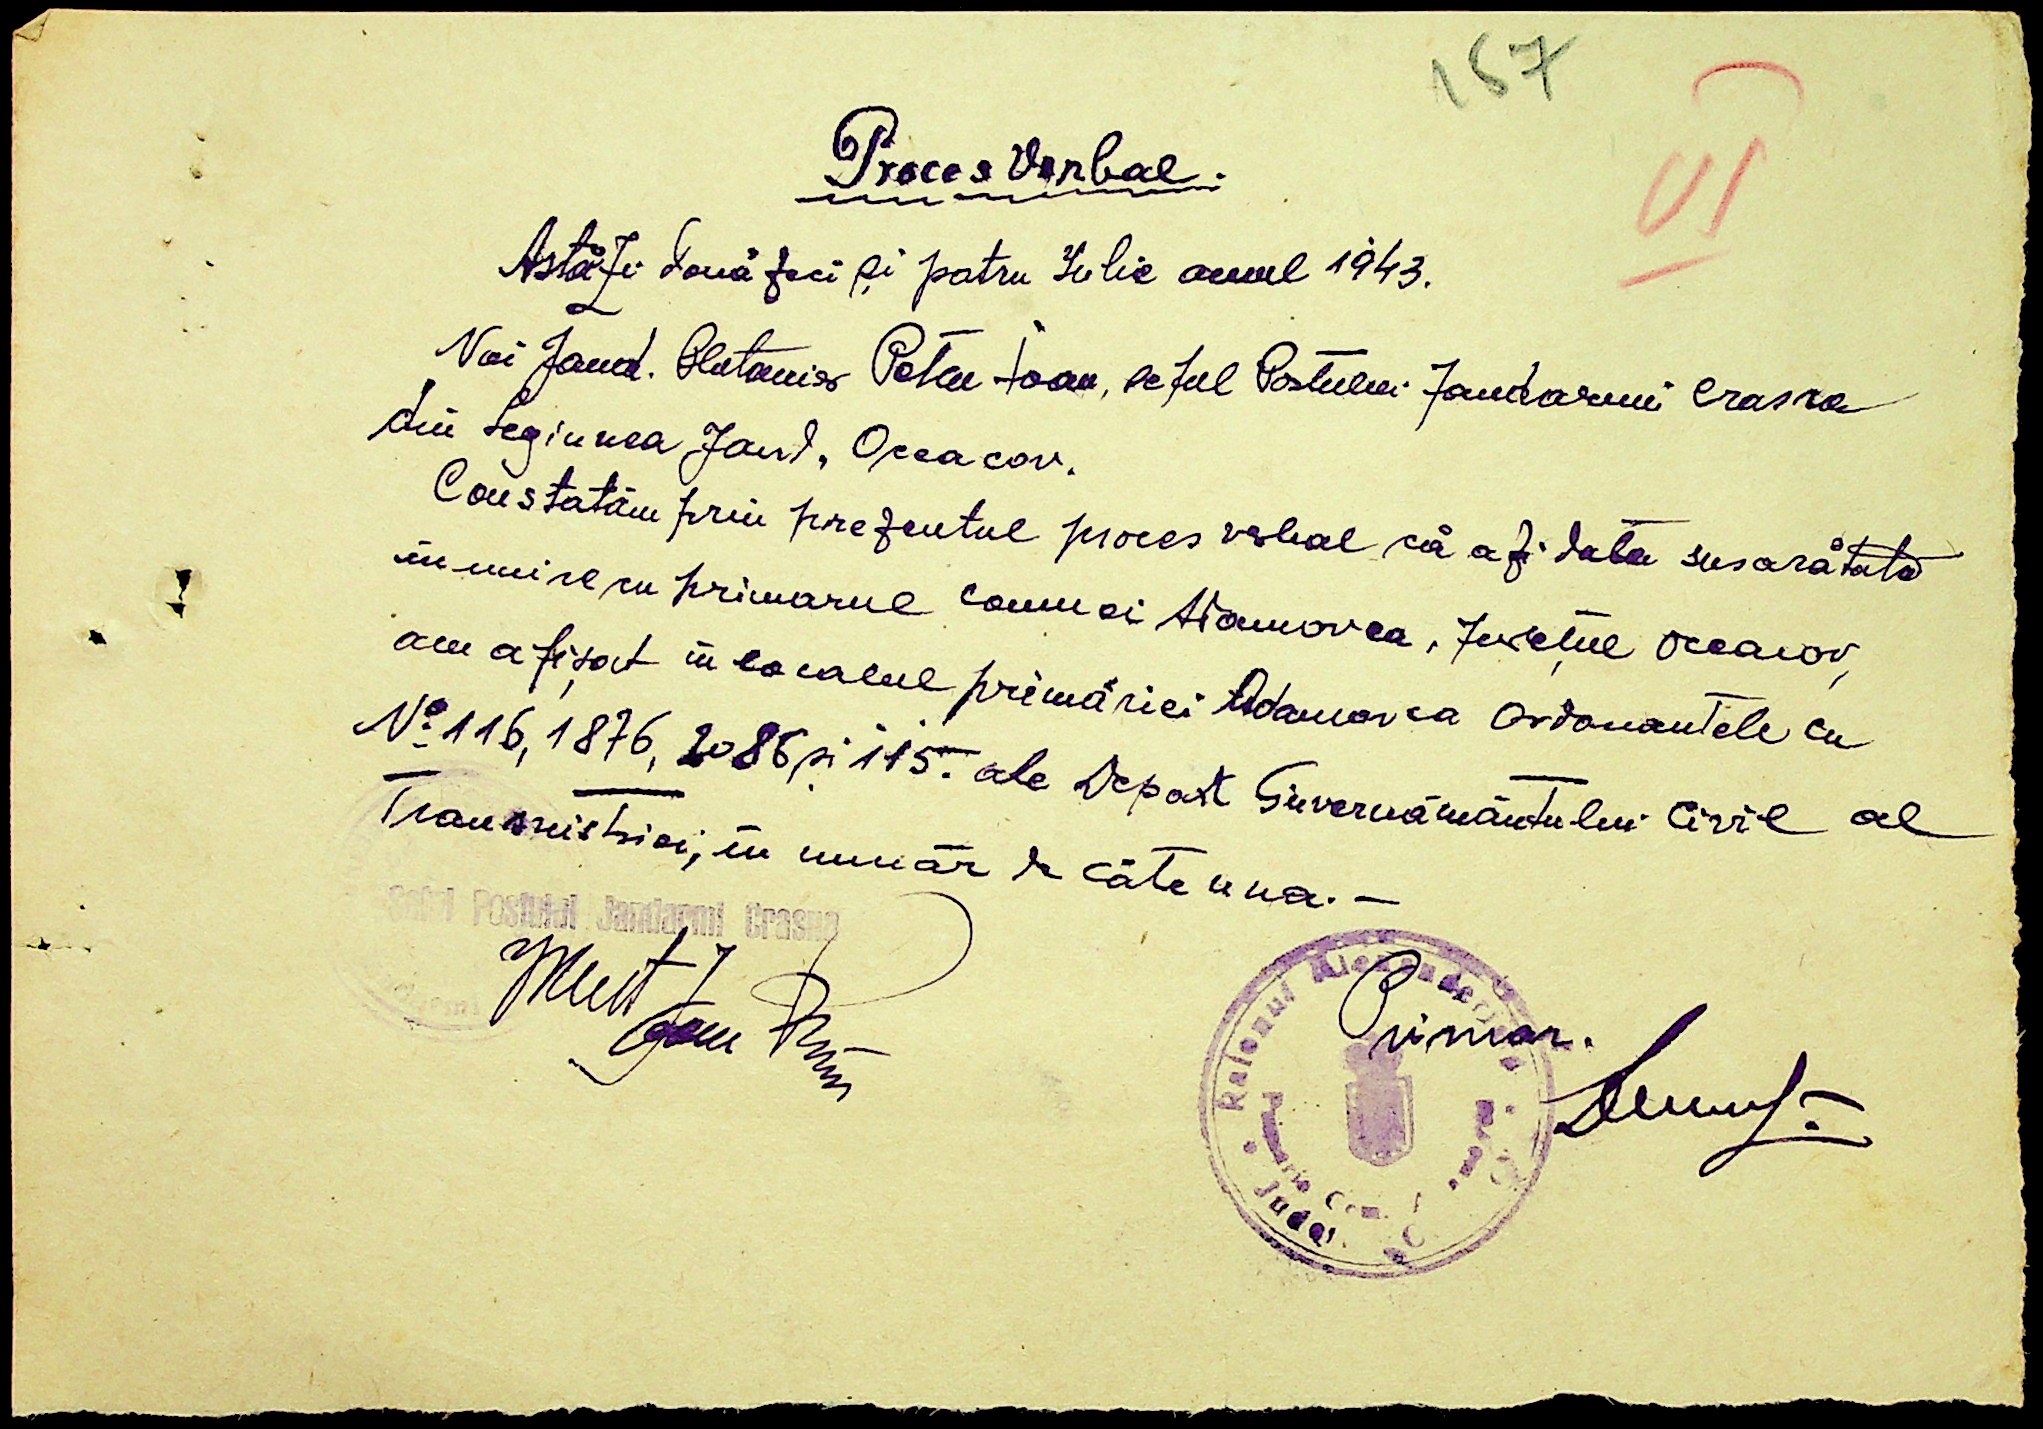 157
VI
Proces Verbal.
Astăzi două zeci și patru Iulie anul 1943.
Noi Jand. Plutonier Petcu Ioan, șeful Postului Jandarmi Crasna
din Legiunea Jand. Oceacov.
Constatăm prin prezentul proces verbal că azi data susarătată
în unire cu primarul comunei Adamovca, Județul Oceacov,
am afișat în localul primăriei Adamovca ordonantele cu
No. 116, 1876, 2086 și 115. ale Depart Guvernământului Civil al
Transnistriei, în număr de câte una. —
Șeful Postului Jandarmi Crasna
Primar.
Raionul
Județ